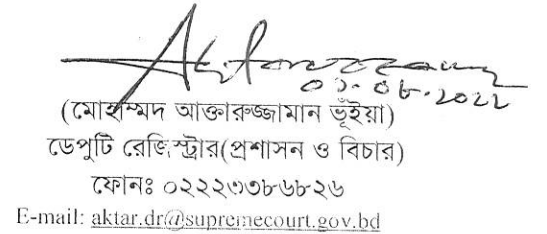 ০১.০৮.২০২২
(মোহাম্মদ আক্তারুজ্জামান ভূঁইয়া)
ডেপুটি রেজিস্ট্রার(প্রশাসন ও বিচার)
ফোনঃ ০২২২৩৩৮৬৮২৬
E-mail: aktar.dr@supremecourt.gov.bd